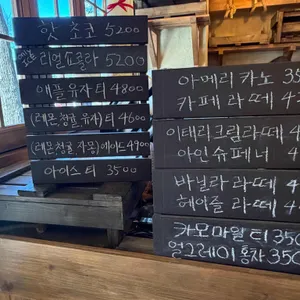 핫 초코 5200
리얼쇼콜라 5200
애플유자티 4800
(레몬,청귤,유자)티 4600
(레몬,청귤,자몽)에이드 4900
아이스티 3500
아메리카노 35
카페라떼 4
이태리크림라떼 4
아인슈페너 4
바닐라 라떼 4
헤이즐 라떼 4
카모마일티 350
얼그레이 홍차 350